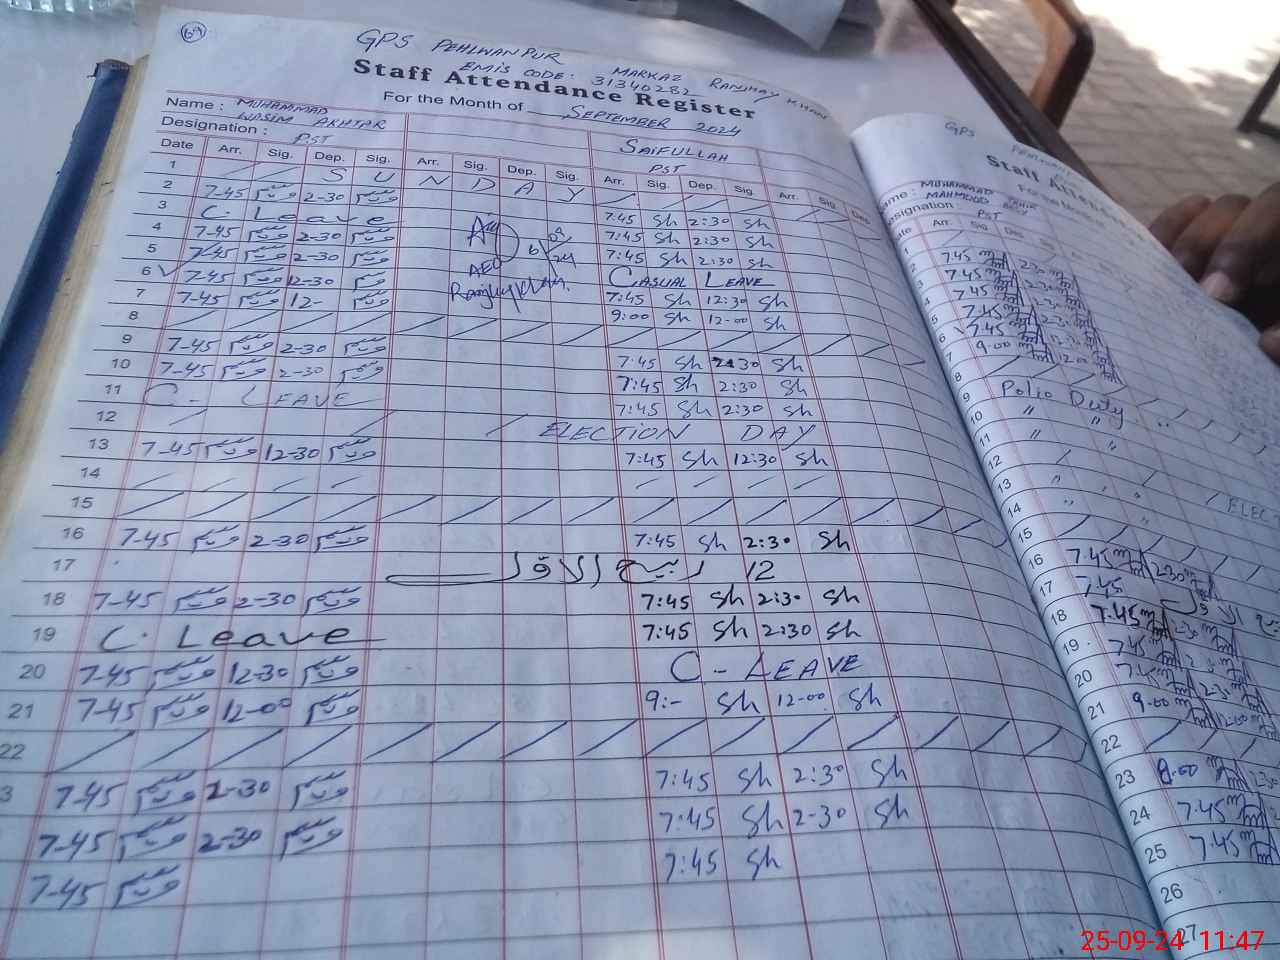 64
GPS PEHLWANPUR MARKAZ RANJHAY KHAN
EMIS CODE: 31340282
Staff Attendance Register
For the Month of SEPTEMBER 2024
Name : MUHAMMAD WASIM AKHTAR SAIFULLAH
Designation : PST PST
Date Arr. Sig. Dep. Sig. Arr. Sig. Dep. Sig. Arr. Sig. Dep. Sig. Arr. Sig. Dep.
1 S U N D A Y
2 7-45 وسیم 2-30 وسیم 7:45 Sh 2:30 Sh
3 C. Leave 7:45 Sh 2:30 Sh
4 7-45 وسیم 2-30 وسیم 7:45 Sh 2:30 Sh
5 7-45 وسیم 2-30 وسیم CASUAL LEAVE
6 7-45 وسیم 12-30 وسیم 7:45 Sh 12:30 Sh
7 7-45 وسیم 12- وسیم 9:00 Sh 12-00 Sh
AEO
8
9 7-45 وسیم 2-30 وسیم 7:45 Sh 2:30 Sh
10 7-45 وسیم 2-30 وسیم 7:45 Sh 2:30 Sh
11 C - LEAVE 7:45 Sh 2:30 Sh
12 ELECTION DAY
13 7-45 وسیم 12-30 وسیم 7:45 Sh 12:30 Sh
14
15
16 7-45 وسیم 2-30 وسیم 7:45 Sh 2:30 Sh
17 12 ربیع الاول
18 7-45 وسیم 2-30 وسیم 7:45 Sh 2:30 Sh
19 C. Leave 7:45 Sh 2:30 Sh
20 7-45 وسیم 12-30 وسیم C - LEAVE
21 7-45 وسیم 12-00 وسیم 9:- Sh 12-00 Sh
22
3 7-45 وسیم 2-30 وسیم 7:45 Sh 2:30 Sh
7-45 وسیم 2-30 وسیم 7:45 Sh 2-30 Sh
7-45 وسیم 7:45 Sh
GPS
Staff Atten
ame : MUHAMMAD TAHIR MAHMOOD
esignation : PST
ate Arr. Sig. Dep.
1
2 7.45 2-30
3 7.45 2-30
4 7.45 2-30
5 7.45 2-30
6 7.45 12-30
7 9.00 12.00
8
9 Polio Duty
10 " "
11 " "
12
13 " " ELEC
14 " "
15
16 7.45 2-30
17 7.45
18 7.45 2-30
19 7.45
20 7.45 2-30
21 9.00 12-00
22
23 8.00 2-30
24 7.45
25 7.45
26
27
25-09-24 11:47